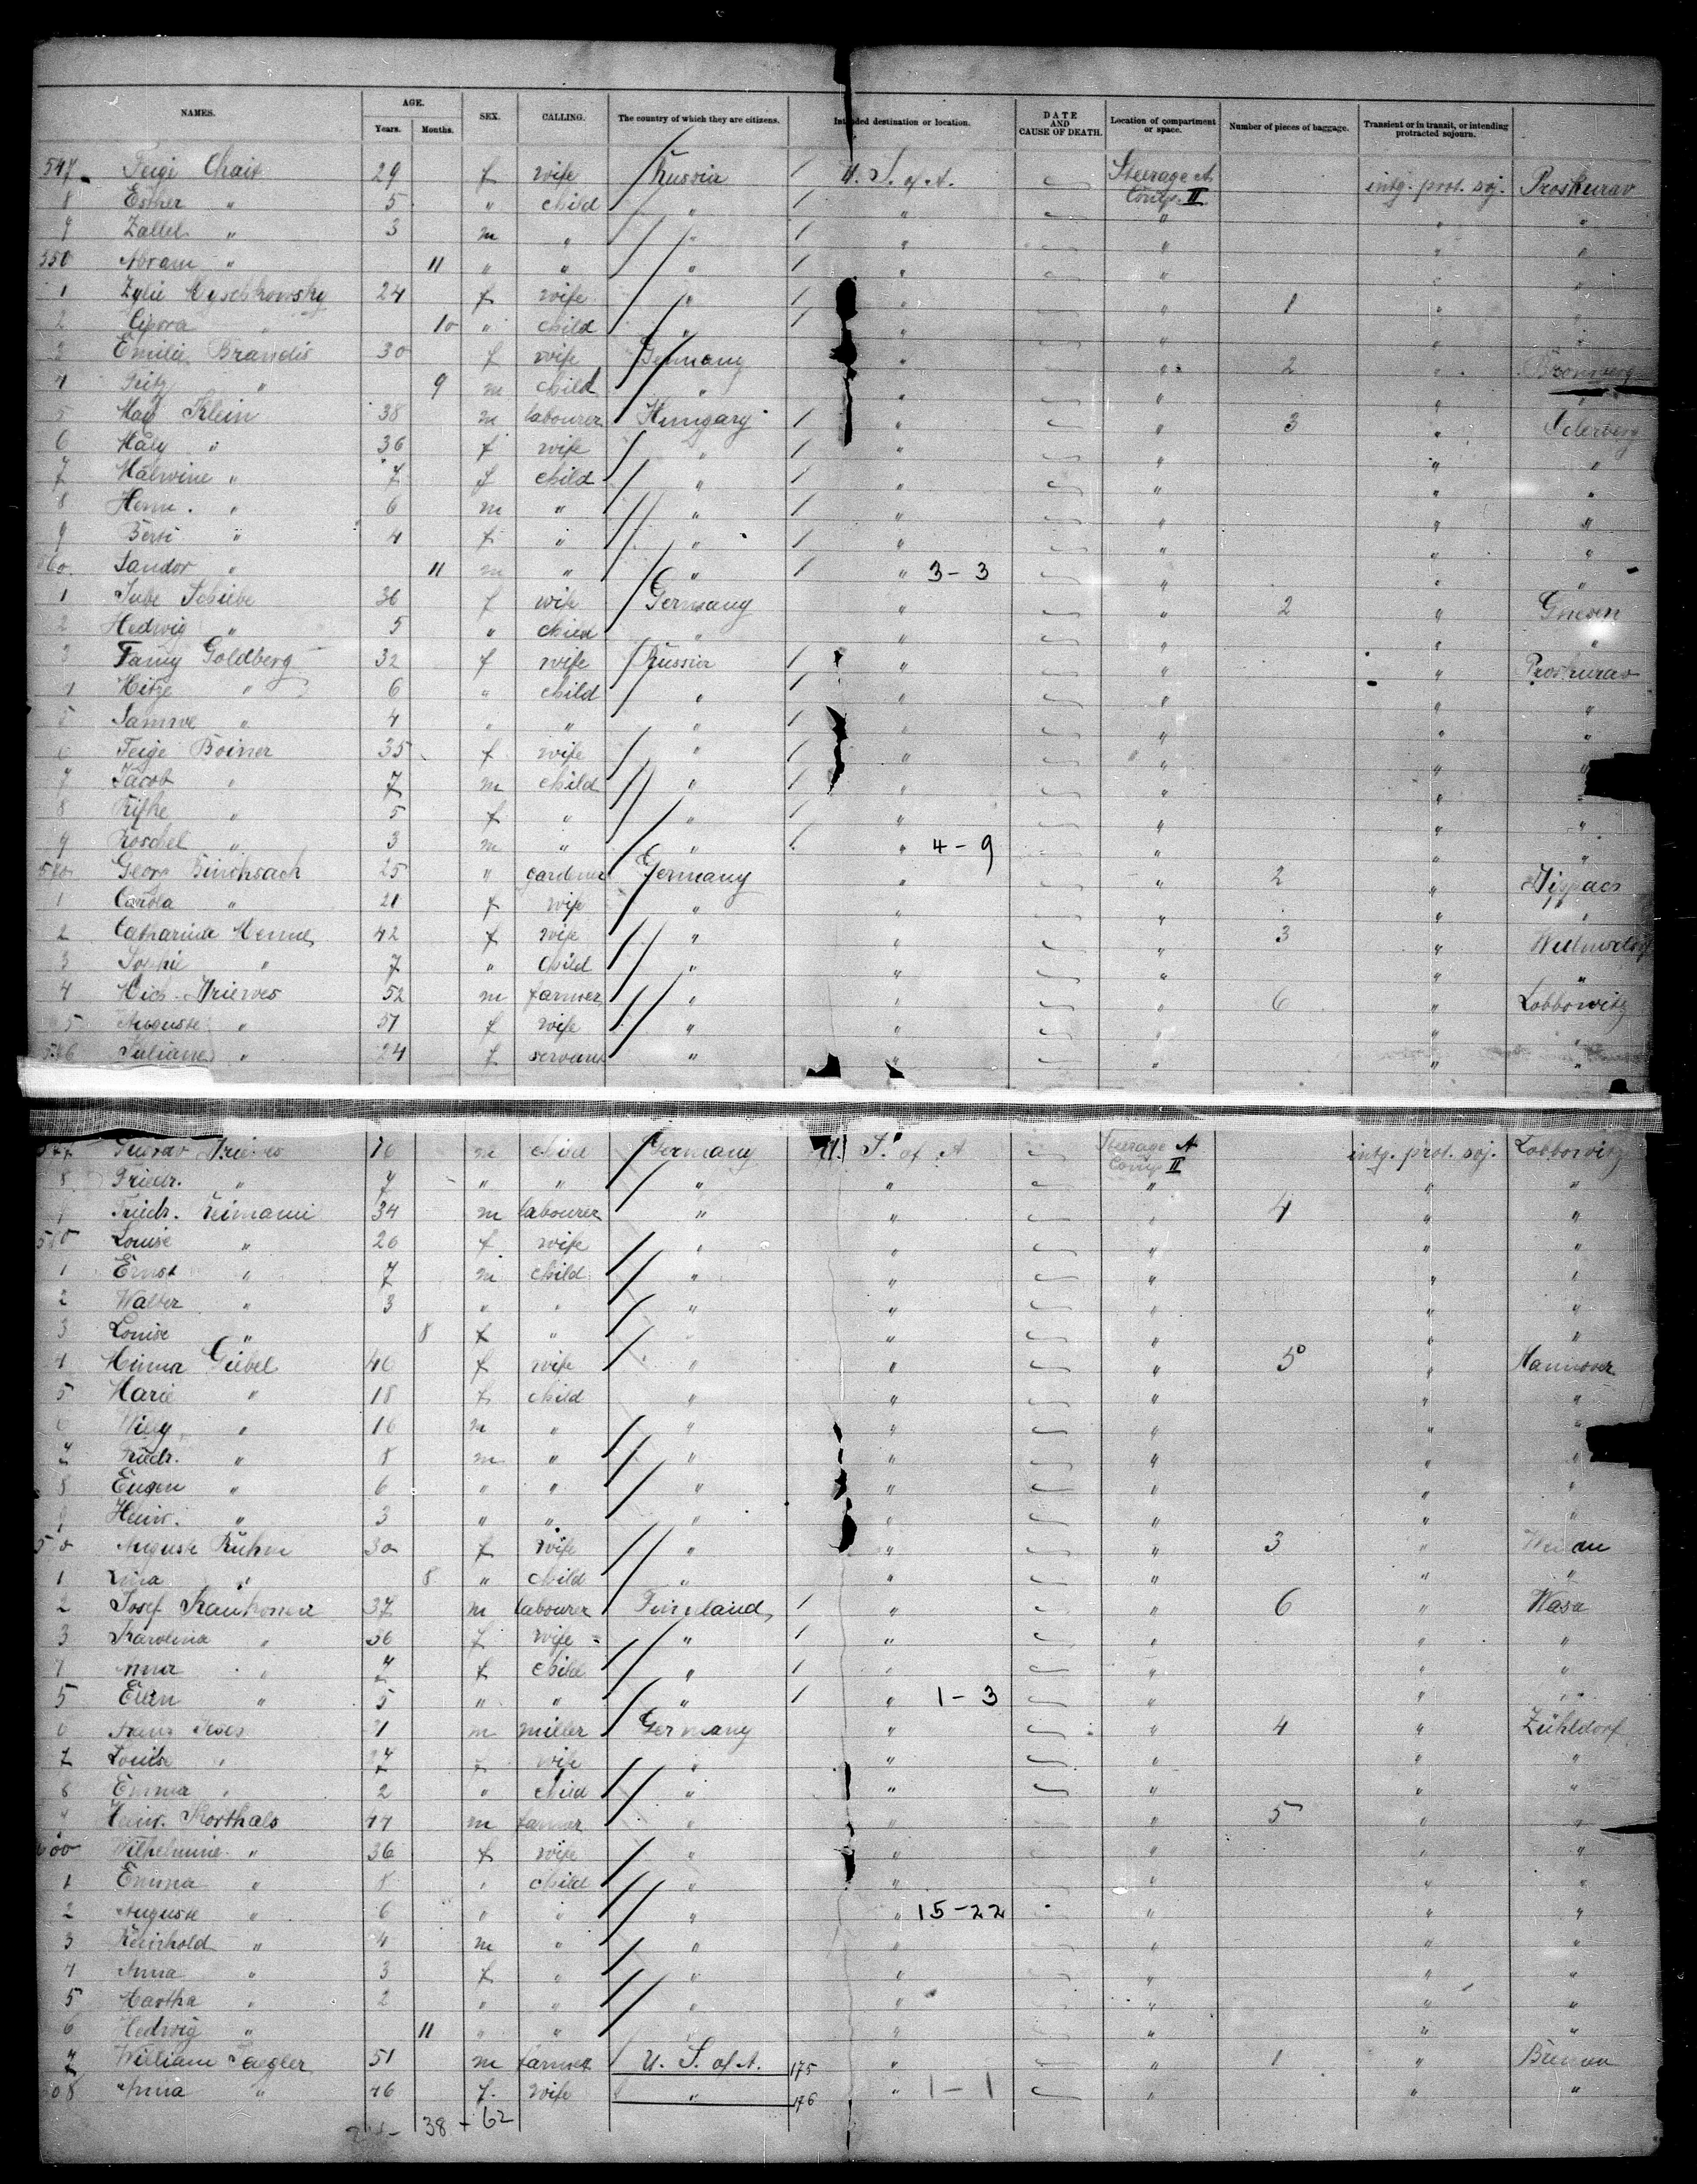 NAMES. AGE. Years. Months. SEX. CALLING. The country of which they are citizens. Intended destination or location. DATE AND CAUSE OF DEATH. Location of compartment or space. Number of pieces of baggage. Transient or in transit, or intending protracted sojourn.
547 Feigi Chait 29 f wife Russia U. S. of A. Steerage A Comp. II intg. prot. soj. Proskurav
8 Esther " 5 " child " " " " "
9 Zallel " 3 m " " " " " "
550 Abram " 11 " " " " " " "
1 Zylie 24 f wife " " " 1 " "
2 Cipora " 10 " child " " " " "
3 Emilie Brandis 30 f wife Germany " " 2 " Bromberg
4 Fritz " 9 m child " " " " "
5 Klein 38 m labourer Hungary " " 3 "
6 " 36 f wife " " " " "
7 Malwine " 7 f child " " " " "
8 Herm. " 6 m " " " " " "
9 " 4 f " " " " " "
560. Sandor " 11 m " " " 3-3 " " "
1 36 f wife Germany " " 2 " Gnesen
2 Hedwig " 5 " child " " " " "
3 Fanny Goldberg 32 f wife Russia " " " Proskurav
4 " 6 " child " " " " "
5 " 4 " " " " " " "
6 Feige 35 f wife " " " " "
7 Jacob " 7 m child " " " " "
8 Rifke " 5 f " " " " " "
9 Roschel " 3 m " " " 4-9 " " "
570 Georg 25 " gardener Germany " " 2 "
1 Carola " 21 f wife " " " " "
2 Catharina 42 f wife " " " 3 "
3 Sophie " 7 " child " " " " "
4 Mich. Driewes 52 m farmer " " " 6 " Lobbowitz
5 Auguste " 51 f wife " " " " "
576 Juliane " 24 f servant " " " " "
577 Gustav Driewes 16 m child Germany U. S. of A Steerage A Comp. II intg. prot. soj. Lobbowitz
8 Friedr. " 7 " " " " " " "
9 Friedr. Reimann 34 m labourer " " " 4 " "
580 Louise " 26 f wife " " " " "
1 Ernst " 7 m child " " " " "
2 Walter " 3 " " " " " " "
3 Louise " 8 f " " " " " "
4 Minna Giebel 40 f wife " " " 5 " Hannover
5 Marie " 18 f child " " " " "
6 Willy " 16 m " " " " " "
7 Friedr. " 8 m " " " " " "
8 Eugen " 6 " " " " " " "
9 Heinr. " 3 " " " " " " "
590 Auguste 30 f wife " " " 3 "
1 Lina " 8 " child " " " " "
2 Josef 37 m labourer Finnland, " " 6 " Wasa
3 Karolina " 36 f wife " " " " "
4 Anna " 7 f child " " " " "
5 " 5 " " " " 1-3 " " "
6 Franz 31 m miller Germany " " 4 " Zühldorf
7 Louise " 27 f wife " " " " "
8 Emma " 2 " child " " " " "
9 Heinr. Korthals 44 m farmer " " " 5 " "
600 Wilhelmine " 36 f wife " " " " "
1 Emma " 8 " child " " " " "
2 Auguste " 6 " " " " 15-22 " " "
3 Reinhold " 4 m " " " " " "
4 Anna " 3 f " " " " " "
5 Martha " 2 " " " " " " "
6 Hedwig " 11 " " " " " " "
7 William 51 m farmer U. S. of A. 175 " " 1 " Bremen
608 Anna " 46 f. wife " 176 " 1-1 " " "
38-62